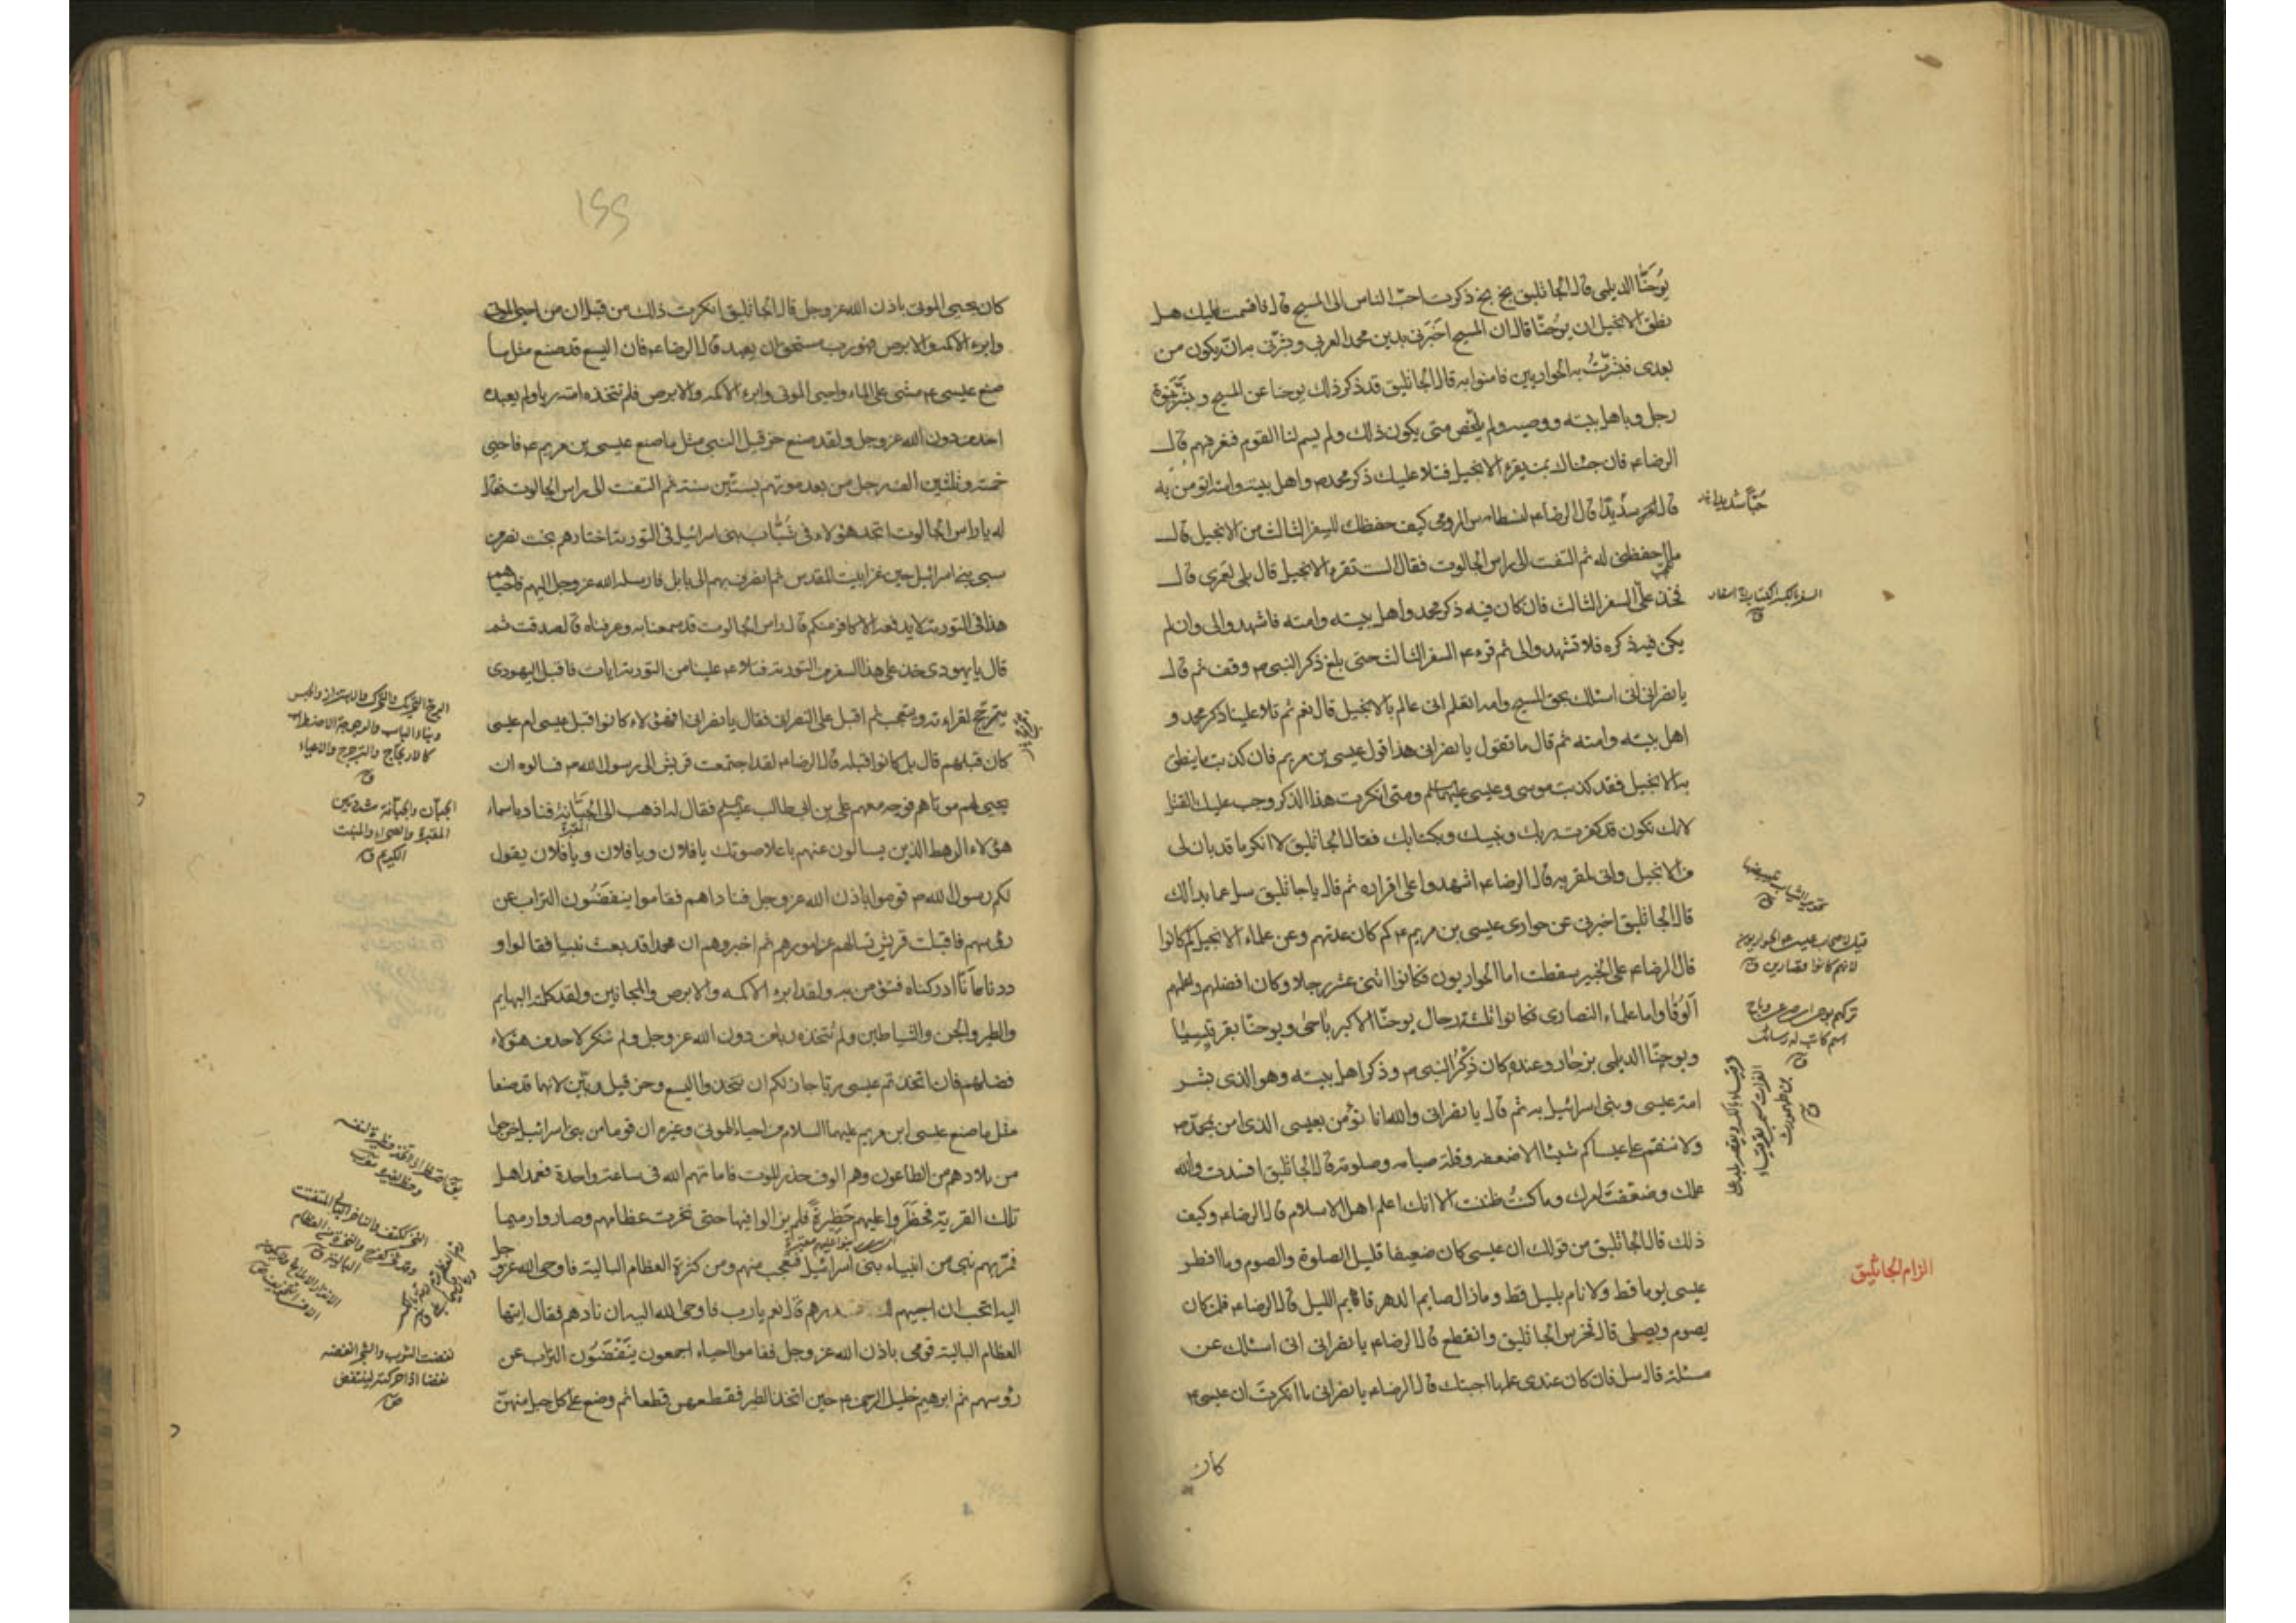 يُوحَنّا الديلمى قال الجاثليق بخ بخ ذكرت احب الناس الى المسيح قال فاقسمت عليك هل
نطق الانجيل ان يوحنا قال ان المسيح اخبرنى بدين محمد العربى وبشرنى به انه يكون من
بعدى فبشرت به الحواريين فامنوا به قال الجاثليق قد ذكر ذلك يوحنا عن المسيح وبشر بنبوة
رجل وباهل بيته ووصيه ولم يلخص متى يكون ذلك ولم يسم لنا القوم فنعرفهم قال
الرضا ع فان جئناك بمن يقرء الانجيل فتلا عليك ذكر محمد ص واهل بيته وامته اتؤمن به
قال سديدا قال الرضا ع لنسطاس الرومى كيف حفظك للسفر الثالث من الانجيل قال
ما احفظنى له ثم التفت الى راس الجالوت فقال الست تقرء الانجيل قال بلى لعمرى قال
فخذ على السفر الثالث فان كان فيه ذكر محمد واهل بيته وامته فاشهدوا لى وان لم
يكن فيه ذكره فلا تشهدوا لى ثم قرء ع السفر الثالث حتى بلغ ذكر النبى ص وقف ثم قال
يا نصرانى انى اسئلك بحق المسيح وامه اتعلم انى عالم بالانجيل قال نعم ثم تلا علينا ذكر محمد و
اهل بيته وامته ثم قال ما تقول يا نصرانى هذا قول عيسى بن مريم فان كذبت ما ينطق
به الانجيل فقد كذبت موسى وعيسى عليهما السلم ومتى انكرت هذا الذكر وجب عليك القتل
لانك تكون قد كفرت بربك ونبيك وبكتابك فقال الجاثليق لا انكر ما قد بان لى
من الانجيل وانى لمقر به قال الرضا ع اشهدوا على اقراره ثم قال يا جاثليق سل عما بدا لك
قال الجاثليق اخبرنى عن حوارى عيسى بن مريم ع كم كان عدتهم وعن علماء الانجيل كم كانوا
قال الرضا ع على الخبير سقطت اما الحواريون فكانوا اثنى عشر رجلا وكان افضلهم واعلمهم
الوقا واما علماء النصارى فكانوا ثلثة رجال يوحنا الاكبر باحى ويوحنا بقرقيسيا
ويوحنا الديلمى بزجار وعنده كان ذكر النبى ص وذكر اهل بيته وهو الذى بشر
امة عيسى وبنى اسرائيل به ثم قال يا نصرانى والله انا نؤمن بعيسى الذى امن بمحمد ص
ولا ننقم على عيساكم شيئا الا ضعفه وقلة صيامه وصلوته قال الجاثليق افسدت والله
علمك وضعفت امرك وما كنت ظننت الا انك اعلم اهل الاسلام قال الرضا ع وكيف
ذلك قال الجاثليق من قولك ان عيسى كان ضعيفا قليل الصلوة والصوم وما افطر
عيسى يوما قط ولا نام بليل قط وما زال صايم الدهر قايم الليل قال الرضا ع فلمن كان
يصوم ويصلى قال فخرس الجاثليق وانقطع قال الرضا ع يا نصرانى انى اسئلك عن
مسئلة قال سل فان كان عندى علمها اجبتك قال الرضا ع يا نصرانى ما انكرت ان عيسى ع
كان
حبا شديدا
السفر بالكسر الكتاب ج اسفار
الزام الجاثليق
١٥٥
كان يحيى الموتى باذن الله عز وجل قال الجاثليق انكرت ذلك من قبل ان من احيى الموتى
وابرء الاكمه والابرص فهو رب مستحق ان يعبد قال الرضا ع فان اليسع قد صنع مثل ما
صنع عيسى ع مشى على الماء واحيى الموتى وابرء الاكمه والابرص فلم تتخذه امته ربا ولم يعبده
احد من دون الله عز وجل ولقد صنع حزقيل النبى مثل ما صنع عيسى بن مريم ع فاحيى
خمسة وثلثين الف رجل من بعد موتهم بستين سنة ثم التفت الى راس الجالوت فقال
له يا راس الجالوت اتجد هؤلاء فى شباب بنى اسرائيل فى التورية اختارهم بخت نصر من
سبى بنى اسرائيل حين غزا بيت المقدس ثم انصرف بهم الى بابل فارسله الله عز وجل اليهم فاحياهم
هذا فى التورية لا يدفعه الا كافر منكم قال راس الجالوت قد سمعنا به وعرفناه قال صدقت ثم
قال يا يهودى خذ على هذا السفر من التورية فتلا ع علينا من التورية ايات فاقبل اليهودى
يترجج لقراءته ويتعجب ثم اقبل على النصرانى فقال يا نصرانى افهؤلاء كانوا قبل عيسى ام عيسى
كان قبلهم قال بل كانوا قبله قال الرضا ع لقد اجتمعت قريش الى رسول الله ص فسالوه ان
يحيى لهم موتاهم فوجه معهم على بن ابى طالب ع فقال له اذهب الى الجبانة فناد باسماء
هؤلاء الرهط الذين يسالون عنهم باعلا صوتك يا فلان ويا فلان ويا فلان يقول
لكم رسول الله ص قوموا باذن الله عز وجل فناداهم فقاموا ينفضون التراب عن
رؤسهم فاقبلت قريش تسالهم عن امورهم ثم اخبروهم ان محمدا قد بعث نبيا فقالوا و
ددنا انا ادركناه فنؤمن به ولقد ابرء الاكمه والابرص والمجانين ولقد كلمه البهايم
والطير والجن والشياطين ولم نتخذه ربا من دون الله عز وجل ولم ننكر لاحد من هؤلاء
فضلهم فان اتخذتم عيسى ربا جاز لكم ان تتخذوا اليسع وحزقيل ربين لانهما قد صنعا
مثل ما صنع عيسى ابن مريم عليهما السلام من احياء الموتى وغيره ان قوما من بنى اسرائيل خرجوا
من بلادهم من الطاعون وهم الوف حذر الموت فاماتهم الله فى ساعة واحدة فعمد اهل
تلك القرية فحظروا عليهم حظيرة فلم يزالوا فيها حتى نخرت عظامهم وصاروا رميما
فمر بهم نبى من انبياء بنى اسرائيل فتعجب منهم ومن كثرة العظام البالية فاوحى الله عز وجل
اليه اتحب ان احييهم لك قال نعم يا رب فاوحى الله اليه ان نادهم فقال ايتها
العظام البالية قومى باذن الله عز وجل فقاموا احياء اجمعون ينفضون التراب عن
رؤسهم ثم ابرهيم خليل الرحمن ع حين اتخذ الطير فقطعهن قطعا ثم وضع على كل جبل منهن
الجبان والجبانة مشددتين
المقبرة والصحراء والمنبت
الكريم ق
نفضت الثوب والشجر انفضه
نفضا اذا حركته لينتفض